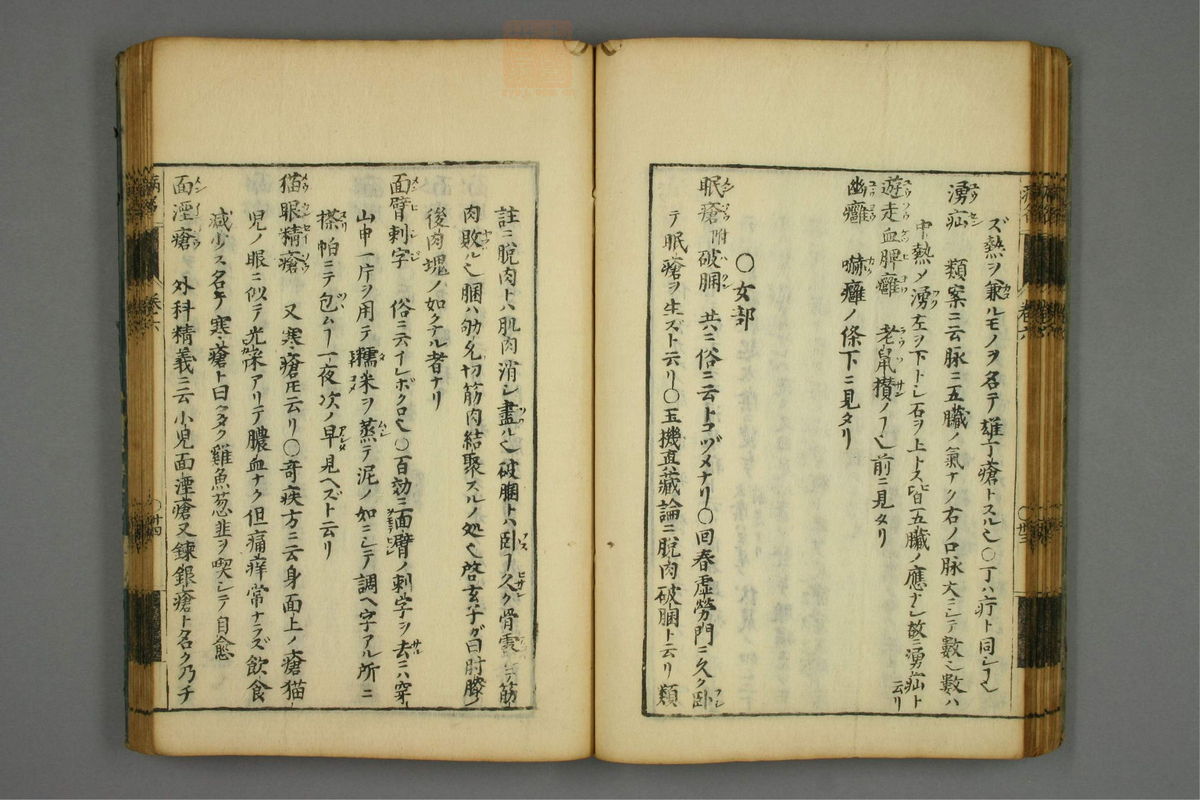 ズ熱ヲ兼ルモノヲ名テ雄丁瘡トスル也〇丁ハ疔ト同シ了也
湧疝　類案ニ云脉ニ五臓ノ氣ナク右ノ口脉大ニシテ數也數ハ
中熱メ湧左ヲ下トシ石ヲ上トス皆五臓ノ應ナシ故ニ湧疝ト云リ
遊走血脾癰　老鼠攅ノ了也前ニ見タリ
幽癰　嚇癰ノ條下ニ見タリ
〇女部
眠瘡附破䐃　共ニ俗ニ云トコヅメナリ〇回春虚勞門ニ久ク臥
テ眠瘡ヲ生ズト云リ〇玉機真藏論ニ脫肉破䐃ト云リ類
註ニ脫肉トハ肌肉消シ盡ル也破䐃トハ臥了久ク骨露テ筋
肉敗ル也䐃ハ筋肉結聚スルノ処也啓玄子ガ曰肘膝ノ
後肉塊ノ如クナル者ナリ
面臂刺字　俗ニ云イレボクロ也〇百効ニ面臂ノ刺字ヲ去ニハ穿
山甲一片ヲ用テ糯米ヲ蒸テ泥ノ如ニシテ調ヘ字アル所ニ
搽帕ニテ包ム了一夜次ノ早見ヘズト云リ
猫眼精瘡　又寒瘡トモ云リ〇奇疾方ニ云身面上ノ瘡猫
児ノ眼ニ似テ光采アリテ膿血ナク但痛痒常ナラズ飲食
减少ス名テ寒瘡ト曰多ク雞魚葱韭ヲ喫シテ自愈
面湮瘡　外科精義ニ云小児面湮瘡又鍊銀瘡ト名ク乃チ
卷六
〇廿四